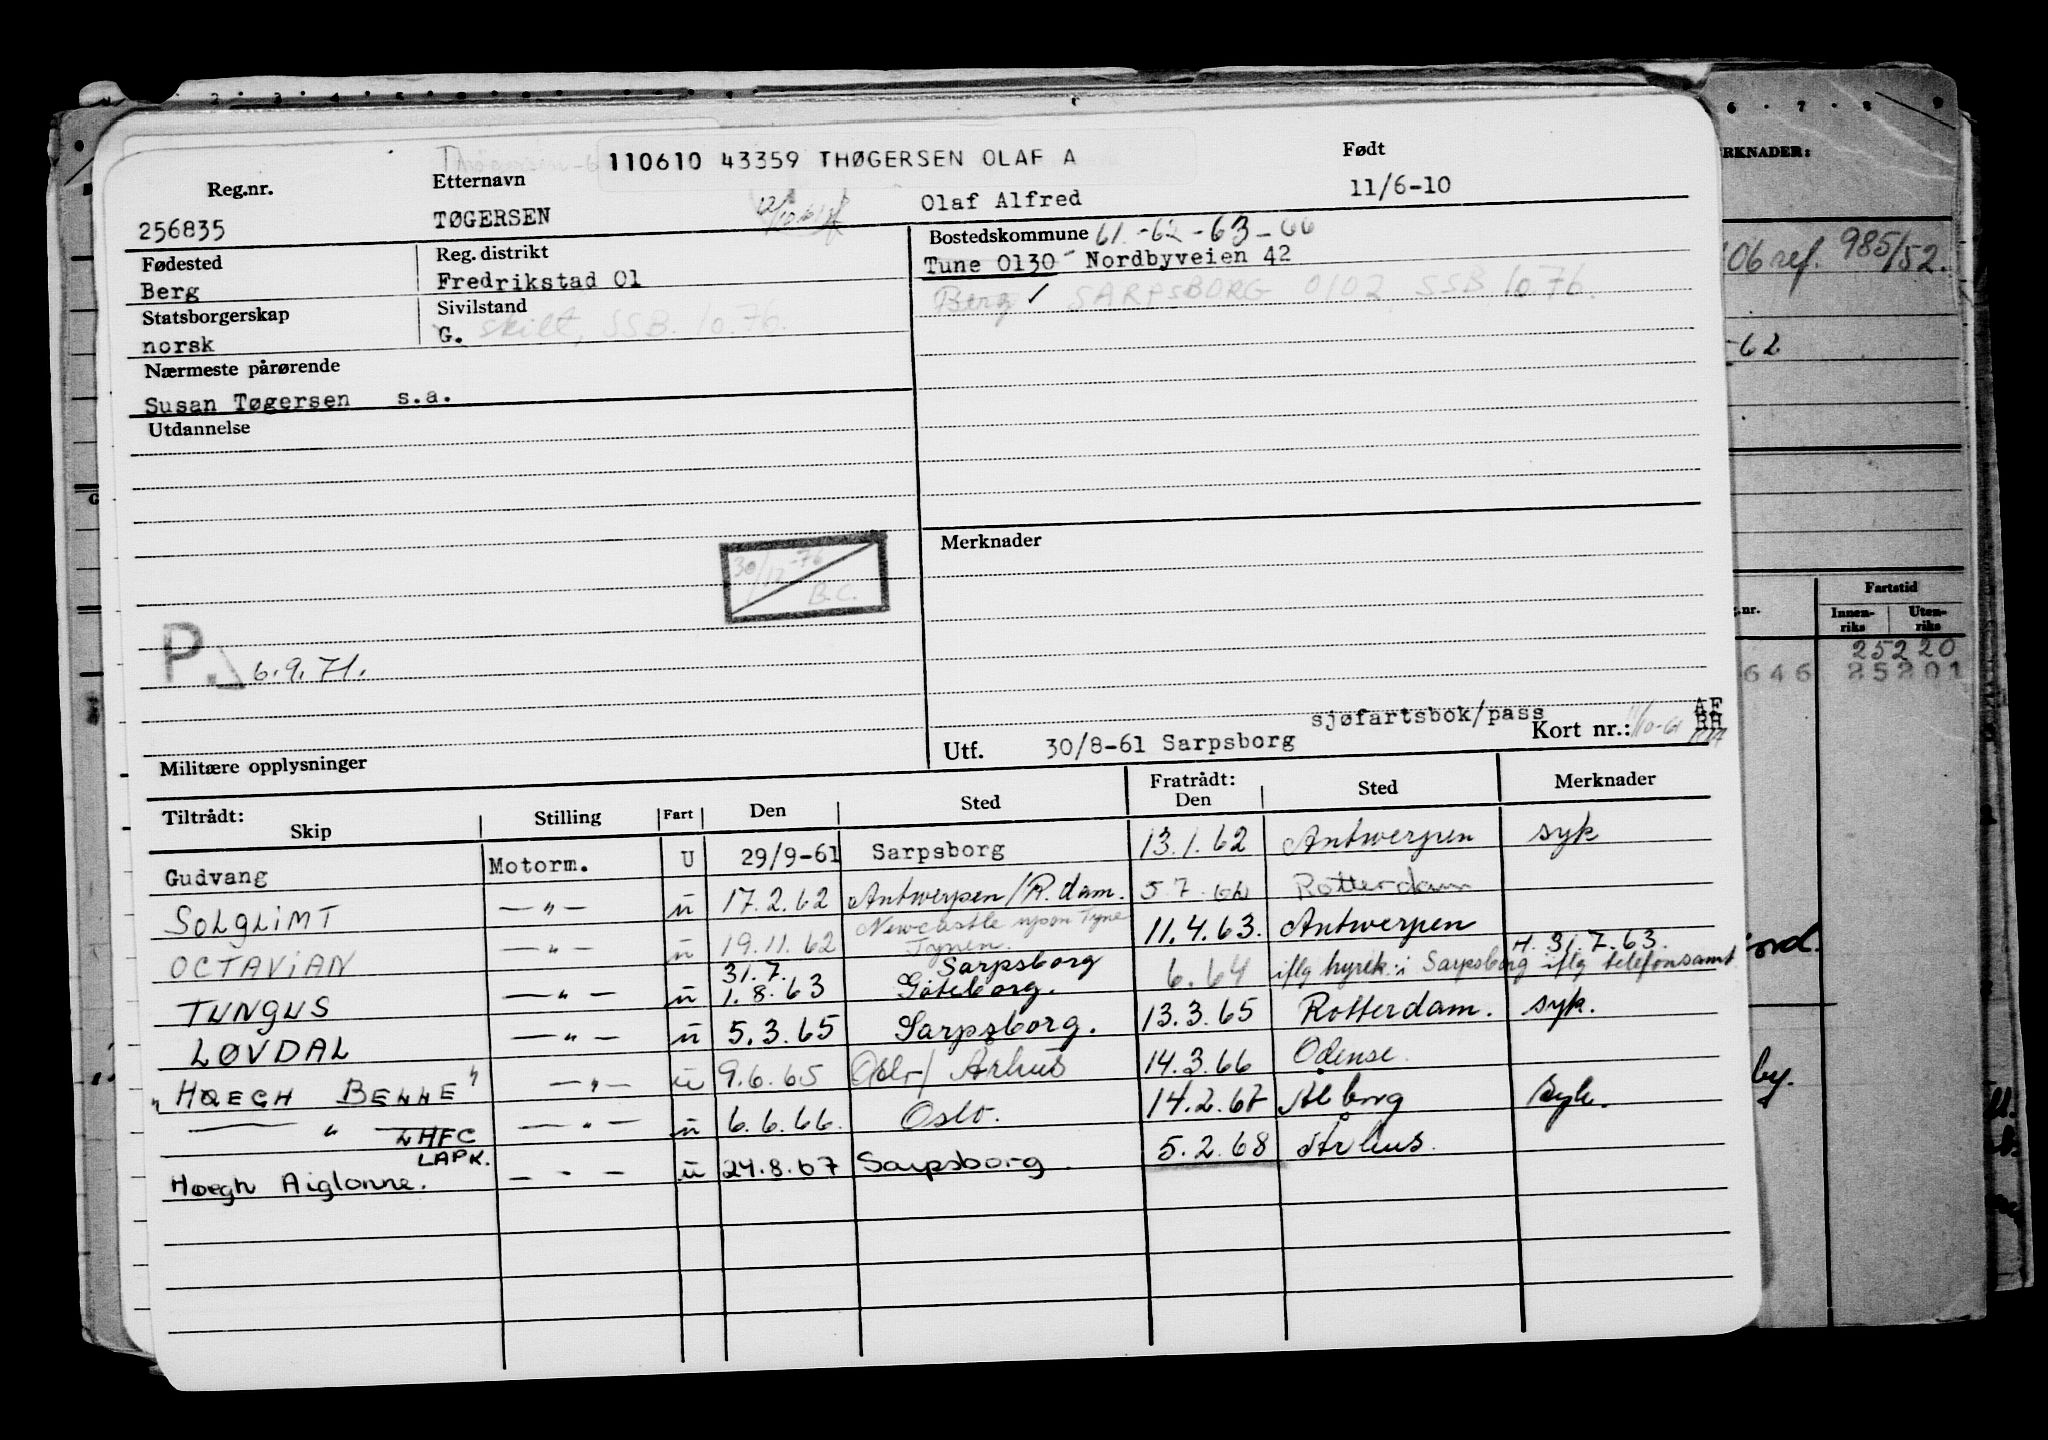 110610 43359 THØGERSEN OLAF A
Reg.nr. Etternavn Født
256835 TØGERSEN Olaf Alfred 11/6-10
Fødested Reg. distrikt Bostedskommune 61-62-63-66
Berg Fredrikstad 01 Tune 0130 Nordbyveien 42
Statsborgerskap Sivilstand Berg ✓ SARPSBORG 0102 SSB 10.76.
norsk G. skilt, SSB. 10.76.
Nærmeste pårørende
Susan Tøgersen s.a.
Utdannelse
Merknader
30/12-76
B.C.
P. 6.9.71.
sjøfartsbok/pass
Utf. 30/8-61 Sarpsborg Kort nr.:
Militære opplysninger
Tiltrådt: Skip Stilling Fart Den Sted Fratrådt: Den Sted Merknader
Gudvang Motorm. U 29/9-61 Sarpsborg 13.1.62 Antwerpen syk
SOLGLIMT — " — ū 17.2.62 Antwerpen/R.dam. 5.7.62 Rotterdam
OCTAVIAN — " — ū 19.11.62 Newcastle upon Tyne Tynen. 11.4.63. Antwerpen
H. 31.7.63.
TUNGUS — " — ū 31.7. 1.8.63 Sarpsborg Göteborg. 6.64 iflg hyrek. i Sarpsborg iflg telefonsamt
LØVDAL — " — ū 5.3.65 Sarpsborg. 13.3.65 Rotterdam. syk.
"HOEGH BELLE" — " — ū 9.6.65 Oslo/Århus 14.3.66 Odense.
— " — LHFC — " — ū 6.6.66. Oslo. 14.2.67 Ålborg syk.
LAPK.
Høegh Aiglonne. — - — ū 24.8.67 Sarpsborg. 5.2.68 Århus.
RKNADER:
06 ref. 985/52.
-62
Fartstid
.nr. Innenriks Utenriks
25220
646 25201
by.